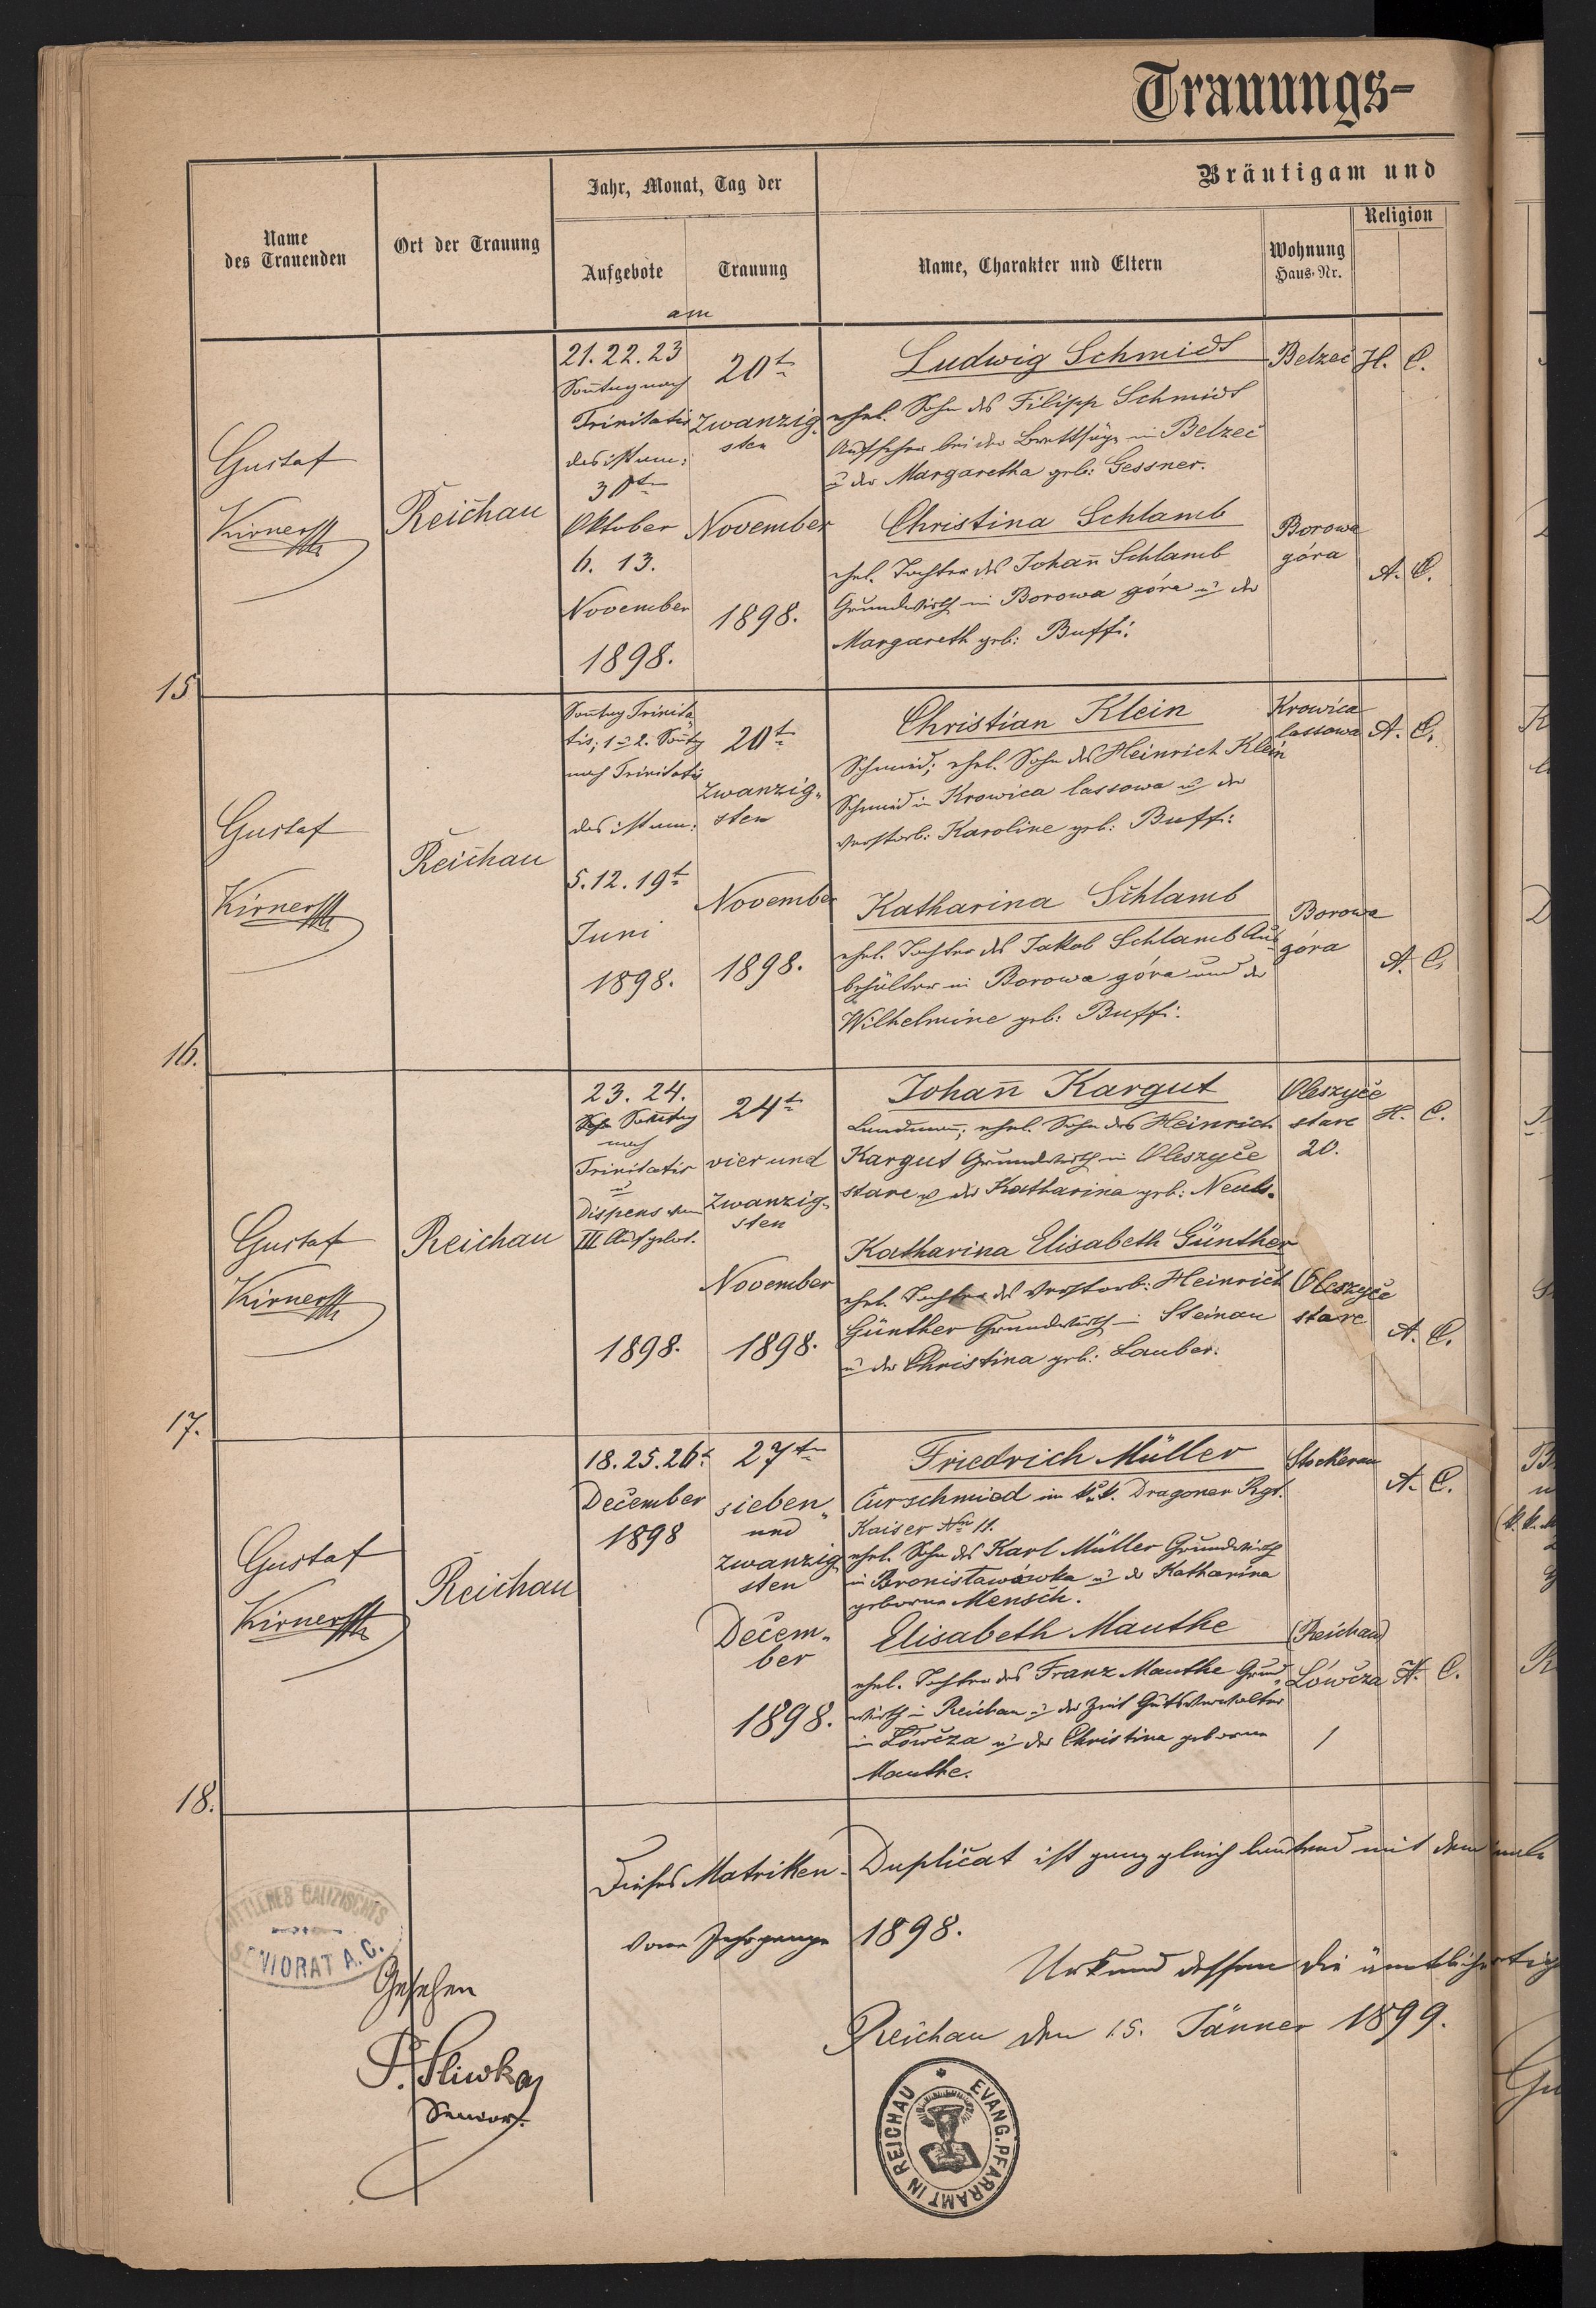 Trauungs-
Name
des Trauenden
Ort der Trauung
Jahr, Monat, Tag der
Aufgebote
Trauung
am
Bräutigam und
Name, Charakter und Eltern
Wohnung
Haus-Nr.
Religion
Gustaf
Kirner
Reichau
21. 22. 23
Sontag nach
Trinitatis
das ist am:
30t
Oktober
6. 13.
November
1898.
20t
Zwanzig-
sten
November
1898.
Ludwig Schmidt
ehel. Sohn des Filipp Schmidt
Aufseher bei der Brettsäge in Belzec
u der Margaretha geb: Gessner.
Belzec
H. C.
Christina Schlamb
ehel. Tochter des Johan̄ Schlamb
Grundwirth in Borowa góra u der
Margareth geb: Buffi.
Borowa
góra
A. C.
15
Gustaf
Kirner
Reichau
Son̄tag Trinita-
tis; 1 u 2. Son̄tg
nach Trinitatis
das ist am:
5. 12. 19t
Juni
1898.
20t
Zwanzig-
sten
November
1898.
Christian Klein
Schmied; ehel. Sohn des Heinrich Klein
Schmied in Krowica lassowa u der
verstorb: Karoline geb: Buffi:
Krowica
lassowa
A. C.
Katharina Schlamb
ehel. Tochter des Jakob Schlamb Aus-
behälter in Borowa góra und der
Wilhelmine geb: Buffi.
Borowa
góra
A. C.
16.
Gustaf
Kirner
Reichau
23. 24.
Sontag
nach
Trinitatis
u
Dispens vom
III Aufgebot.
1898.
24t
vier und
Zwanzig-
sten
November
1898.
Johan̄ Kargut
Landmann; ehel. Sohn des Heinrich
Kargut Grundwirth in Oleszyce
stare u der Katharina geb: Neub.
Oleszyce
stare
20.
H. C.
Katharina Elisabeth Günther
ehel. Tochter des verstorb: Heinrich
Günther Grundwirth in Steinau
u der Christina geb: Lauber.
Oleszyce
stare
A. C.
17.
Gustaf
Kirner
Reichau
18. 25. 26t
December
1898
27t
sieben-
und
zwanzig-
sten
Decem-
ber
1898.
Friedrich Müller
Curschmied im k.k. Dragoner Rgt.
Kaiser No 11.
ehel. Sohn des Karl Müller Grundwirth
in Bronisławówka u der Katharina
geborne Mensch.
Stockerau
A. C.
Elisabeth Mauthe
ehel. Tochter des Franz Mauthe Grund-
wirth in Reichau u der Zeit Gutsverwalter
in Łówcza u der Christina geborne
Mauthe.
(Reichau)
Łówcza
1
H. C.
18.
Dieses Matriken-Duplicat ist ganz gleich lautend mit dem
vom Jahrgange 1898.
Urkund dessen die ämtliche
Reichau den 15. Jänner 1899.
MITTLERES GALIZISCHES
SENIORAT A. C.
Gesehen
P. Sliwka
Senior.
EVANG. PFARRAMT IN REICHAU